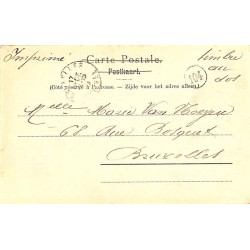 Imprimé
Carte Postale.
timbre
au
dos
Postkaart.
104
(Côté réservé à l'adresse. — Zijde voor het adres alleen.)
Melle Maria Van
68 Rue
Bruxelles